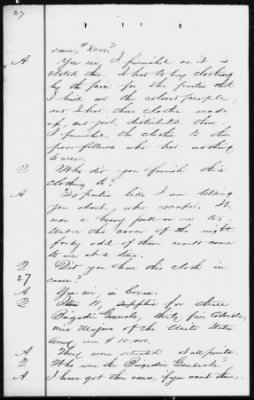 27
A Yes sir, I furnished as it is
stated there. I had to buy clothing
by the piece for the parties that
I hired and the colored people,
and I had these clothes made
up, and just distributed them.
I furnished the clothes to these
poor fellows who had nothing
to wear.
Q Who did you furnish this
clothing to?
A To parties like I am telling
you about, who escaped. It
was a heavy pull on me too.
Under the cover of the night
forty odd of them would come
to me at a time.
Q Did you have this cloth in
27
A Yes sir, in
Q Item 11, supplies for three
Brigadier Generals, thirty five Colonels,
nine Majors of the United States
Army $10,000.
A They were situated at all points.
Q Who were the Brigadier Generals.
A I have got their names, if you want them.